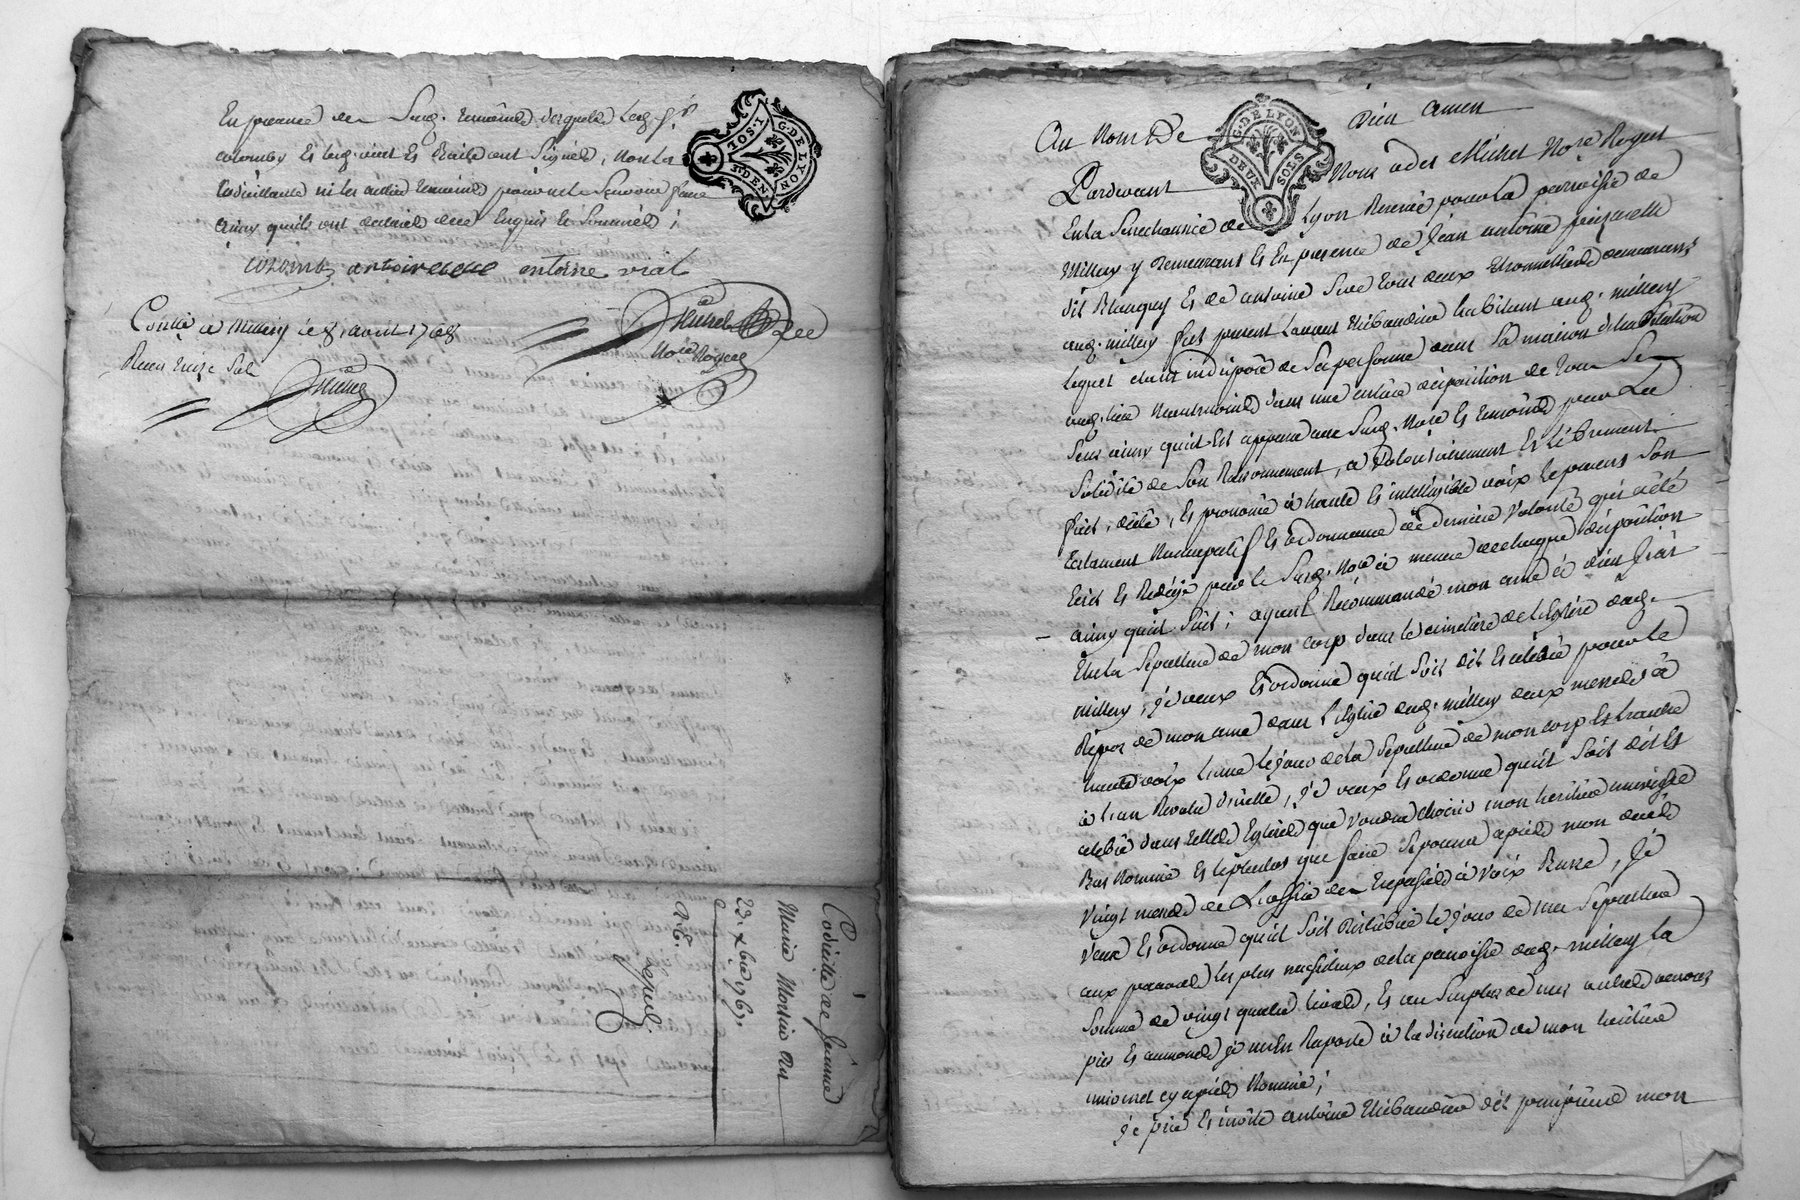 En presence des susd. temoins desquels led. Sr.
colomby et led. viat et traite ont signés, non la
codicillante ni les autres temoins pour ne scavoir faire
ainsy quils ont declaré de ce enquis et sommés ;
colomb antoine antoine vial
Michel
No.re Royal
Contlé a Millery le 8 avril 1768
Reçu treize sols
Michel
G. DE LYON
1. SOL
Codicille de Jeanne
Marie
22. xbre 1767.
n.º 6.
Au Nom De Dieu amen
G. DE LYON
DEUX SOLS
Pardevant Nous Michel No.re Royal
En la Senechaussée de Lyon Reservé pour la parroisse de
Millery y demeurant et En presence de Jean antoine
dit Blanquet et de antoine tous deux demeurants
aud. millery fut present Laurent Thibaudier habitant aud. millery
lequel etant indisposé de sa personne dans sa maison d'habitation
aud. lieu neantmoins dans une entiere disposition de tous ses
sens ainsy quil est apparu aux susd. No.re et temoins par la
solidité de son Raisonnement, a volontairement et librement
fait, dicté, et prononcé à haute et intelligible voix le present son
testament Nuncupatif et ordonnance de derniere volonté qui a été
Ecrit et Redigé par le susd. No.re à mesure de chaque disposition
ainsy quil suit ; ayant Recommandé mon ame à dieu
Elu la sepulture de mon corp dans le cimetiere de l'Eglise dud.
millery, je veux et ordonne quil soit dit et celebré pour le
Repos de mon ame dans l'Eglise dud. millery deux messes à
haute voix l'une le jour de la sepulture de mon corp et l'autre
à l'an Revolu d'icelle, je veux et ordonne quil soit dit et
celebré dans telles Eglises que voudra choisir mon heritier universel
Bas Nommé et le plutos que faire se pourra après mon decès
vingt messes de L'office des trepassés à voix Basse, je
veux et ordonne quil soit distribué le jour de ma sepulture
aux pauvres les plus necessiteux de la parroisse dud. millery la
somme de vingt quatre livres, et au surplus de mes autres œuvres
pies et aumones je m'en Raporte à la discretion de mon heritier
universel cy après Nommé ;
Je prie et invite antoine Thibaudier dit mon